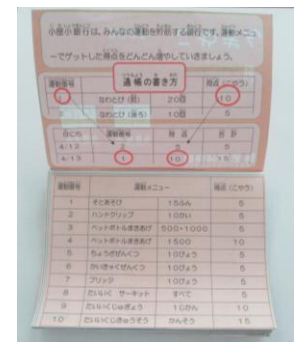 小銀行は、みんなの運動を貯筋する銀行です。運動メニュ
ーでゲットした得点をどんどん増やしていきましょう。
通帳の書き方
運動番号 得点(こやう)
1 なわとび(前) 20回 10
なわとび(後ろ) 10回 5
日にち 運動番号 得点 合計
4/12 2 5 5
4/13 1 10 15
運動番号 運動メニュー 得点(こやう)
1 そとあそび 15ふん 5
2 ハンドグリップ 10かい 5
3 ペットボトルまきあげ 500・1000 5
4 ペットボトルまきあげ 1500 10
5 ちょうざぜんくつ 10びょう 5
6 かいきゃくぜんくつ 10びょう 5
7 ブリッジ 10びょう 5
8 たいいく サーキット すべて 5
9 たいいくじゅぎょう 1じかん 10
10 たいいくじきゅうそう かんそう 15